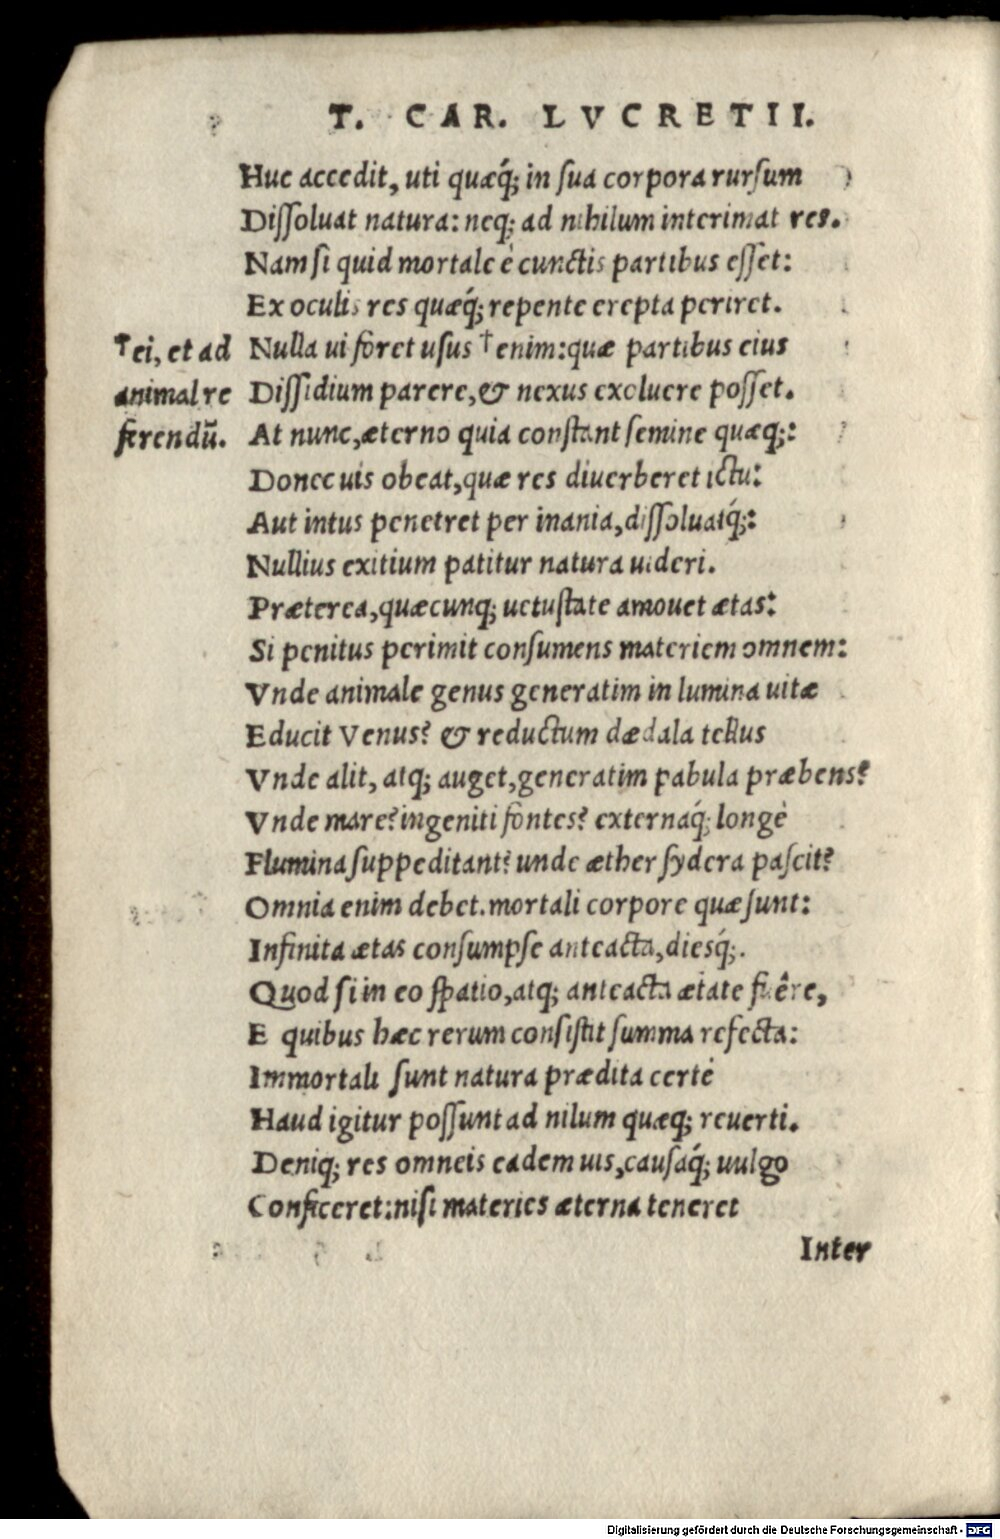 T. CAR. LVCRETII.
Huc accedit, uti quæq́; in sua corpora rursum
Dissoluat natura: neq; ad nihilum interimat res.
Nam si quid mortale è cunctis partibus esset:
Ex oculis res quæq́; repente erepta periret.
†ei, et ad
animal re
ferendũ.
Nulla ui foret usus † enim: quæ partibus eius
Dissidium parere, & nexus exoluere posset.
At nunc, æterno quia constant semine quæq;:
Donec uis obeat, quæ res diuerberet ictu:
Aut intus penetret per inania, dissoluatq́;:
Nullius exitium patitur natura uideri.
Præterea, quæcunq; uetustate amouet ætas:
Si penitus perimit consumens materiem omnem:
Vnde animale genus generatim in lumina uitæ
Educit Venus? & reductum dædala tellus
Vnde alit, atq; auget, generatim pabula præbens?
Vnde mare? ingeniti fontes? externaq́; longè
Flumina suppeditant? unde æther sydera pascit?
Omnia enim debet. mortali corpore quæ sunt:
Infinita ætas consumpse anteacta, diesq́;.
Quod si in eo spatio, atq; anteacta ætate fuêre,
E quibus hæc rerum consistit summa refecta:
Immortali sunt natura prædita certè
Haud igitur possunt ad nilum quæq; reuerti.
Deniq; res omneis eadem uis, causaq́; uulgo
Conficeret: nisi materies æterna teneret
Inter
Digitalisierung gefördert durch die Deutsche Forschungsgemeinschaft - DFG